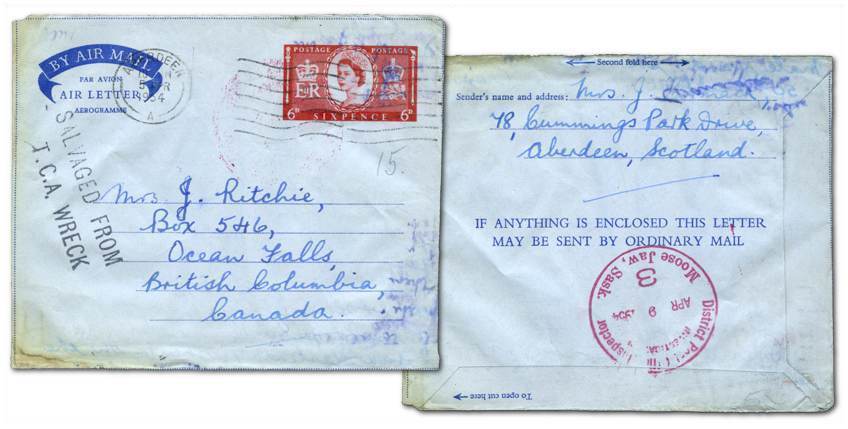 BY AIR MAIL
PAR AVION
AIR LETTER
AEROGRAMME
ABERDEEN
1954
A
POSTAGE POSTAGE
E R
6D SIXPENCE 6D
15.
SALVAGED FROM
T.C.A. WRECK
Mrs. J. Ritchie,
Box 546,
Ocean Falls,
British Columbia,
Canada.
Second fold here
Sender's name and address: Mrs. J.
78, Cummings Park Drive,
Aberdeen, Scotland.
IF ANYTHING IS ENCLOSED THIS LETTER
MAY BE SENT BY ORDINARY MAIL
District Post Inspector
APR 9 1954
3
Moose Jaw, Sask.
To open cut here